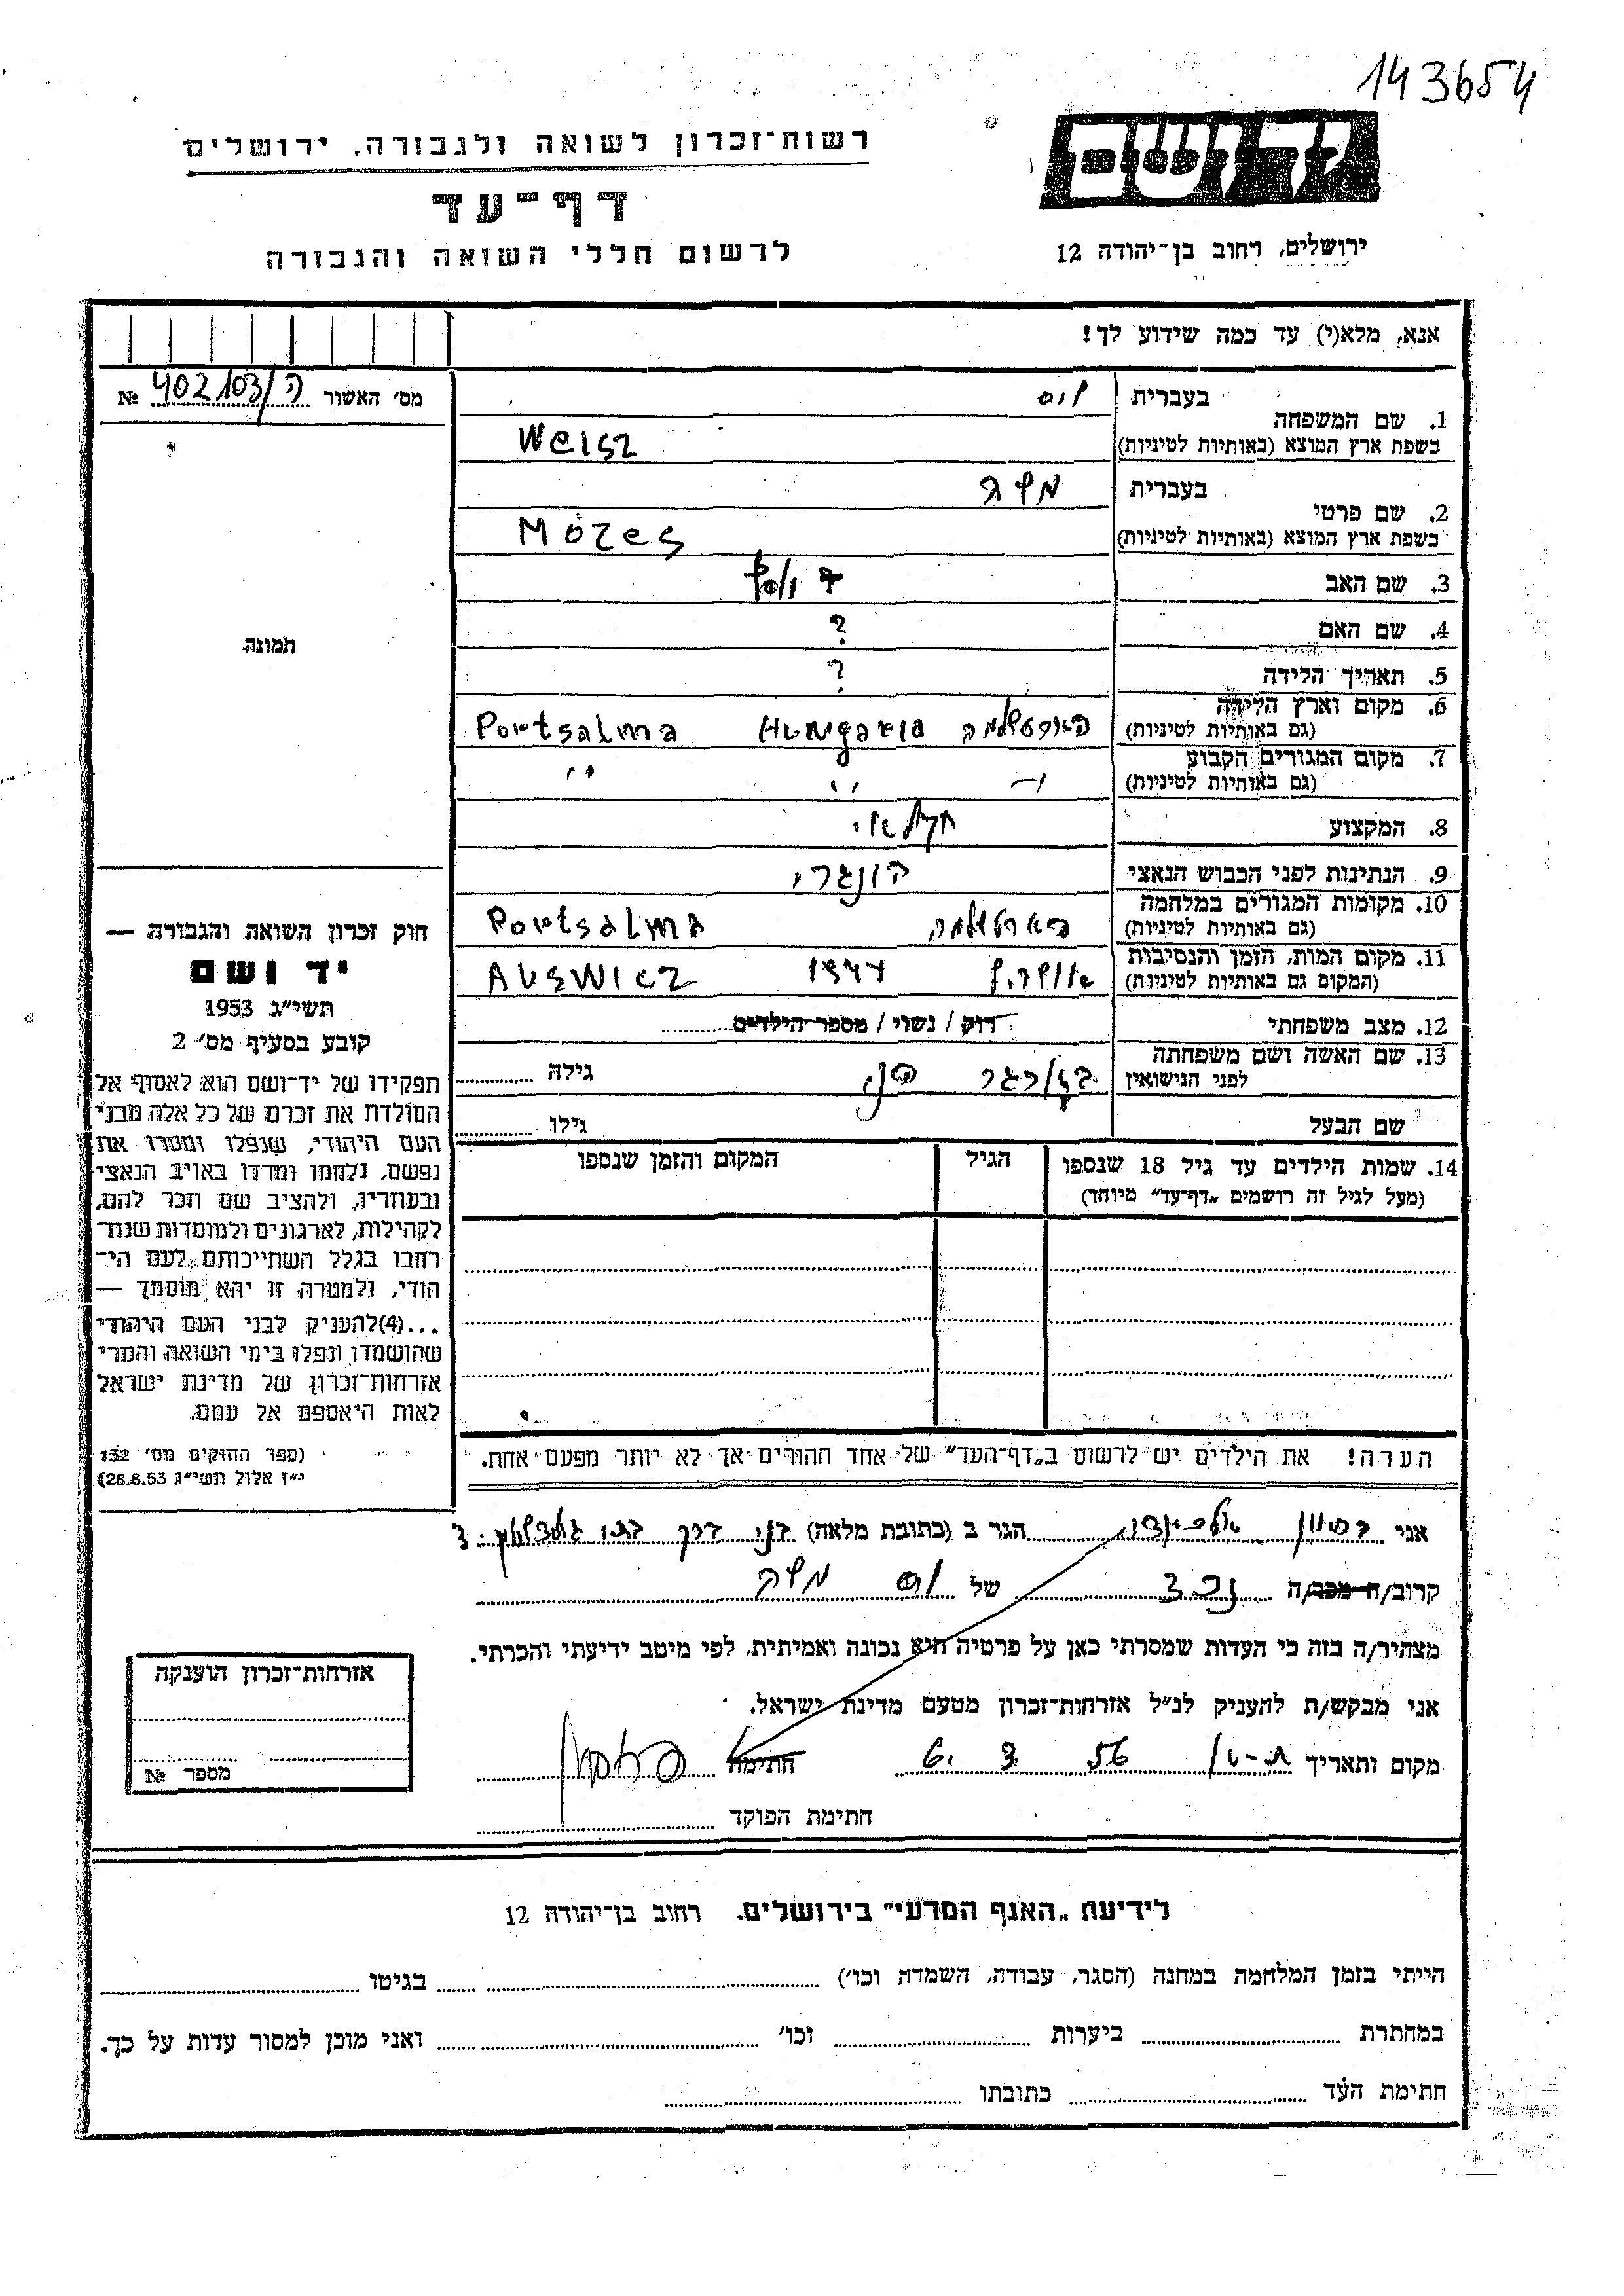 143654
רשות־זכרון לשואה ולגבורה, ירושלים
דף־עד
לרשום חללי השואה והגבורה
יד ושם
ירושלים, רחוב בן־יהודה 12
אנא, מלא(י) עד כמה שידוע לך!
מס׳ האשור ה/402103 №
תמונה
1. שם המשפחה
בעברית וייס
בשפת ארץ המוצא (באותיות לטיניות) Weisz
2. שם פרטי
בעברית משה
בשפת ארץ המוצא (באותיות לטיניות) Mózes
3. שם האב
4. שם האם ?
5. תאריך הלידה ?
6. מקום וארץ הלידה
(גם באותיות לטיניות) Hungaria Portsalma
7. מקום המגורים הקבוע
(גם באותיות לטיניות) ״ ״
8. המקצוע חקלאי
9. הנתינות לפני הכבוש הנאצי הונגרי
10. מקומות המגורים במלחמה
(גם באותיות לטיניות) Portsalma
11. מקום המות, הזמן והנסיבות
(המקום גם באותיות לטיניות) אושויץ 1944 Auswicz
12. מצב משפחתי רוק / נשוי / מספר הילדים
13. שם האשה ושם משפחתה
לפני הנישואין גילה
שם הבעל גילו
14. שמות הילדים עד גיל 18 שנספו הגיל המקום והזמן שנספו
(מעל לגיל זה רושמים „דף־עד״ מיוחד)
הערה! את הילדים יש לרשום ב„דף־העד״ של אחד ההורים אך לא יותר מפעם אחת.
חוק זכרון השואה והגבורה —
יד ושם
תשי״ג 1953
קובע בסעיף מס׳ 2
תפקידו של יד־ושם הוא לאסוף אל
המולדת את זכרם של כל אלה מבני
העם היהודי, שנפלו ומסרו את
נפשם, נלחמו ומרדו באויב הנאצי
ובעוזריו, ולהציב שם וזכר להם,
לקהילות, לארגונים ולמוסדות שנח־
רבו בגלל השתייכותם לעם הי־
הודי, ולמטרה זו יהא מוסמך —
...(4)להעניק לבני העם היהודי
שהושמדו ונפלו בימי השואה והמרי
אזרחות־זכרון של מדינת ישראל
לאות היאספם אל עמם.
(ספר החוקים מס׳ 132
י״ז אלול תשי״ג 28.8.53)
אני הגר ב (כתובת מלאה)
קרוב/ה מכר/ה נכד של וייס משה
מצהיר/ה בזה כי העדות שמסרתי כאן על פרטיה היא נכונה ואמיתית, לפי מיטב ידיעתי והכרתי.
אני מבקש/ת להעניק לנ״ל אזרחות־זכרון מטעם מדינת ישראל.
מקום ותאריך 6. 3 56 חתימה
חתימת הפוקד
אזרחות־זכרון הוענקה
מספר №
לידיעת „האגף המדעי״ בירושלים. רחוב בן־יהודה 12
הייתי בזמן המלחמה במחנה (הסגר, עבודה, השמדה וכו׳) בגיטו
במחתרת ביערות וכו׳ ואני מוכן למסור עדות על כך.
חתימת העד כתובתו